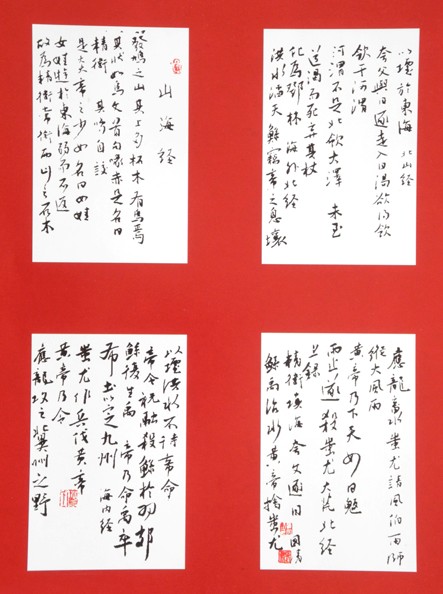 山海经
發鳩之山其上多柘木有鳥焉
其狀如烏文首白喙赤足名曰
精衛 其鳴自詨
是炎帝之少女名曰女娃
女娃游於東海溺而不返
故為精衛常銜西山之石木
以堙於東海 北山经
夸父與日逐走入日渴欲得飲
飲于河渭
河渭不足北飲大澤 未至
道渴而死棄其杖
化為鄧林 海外北经
洪水滔天鯀竊帝之息壤
以堙洪水不待帝命
帝令祝融殺鯀於羽郊
鯀復生禹 帝乃命禹卒
布土以定九州 海内经
蚩尤作兵伐黃帝
黃帝乃令
應龍攻之冀州之野
應龍畜水蚩尤請風伯雨師
縱大風雨
黃帝乃下天女曰魃
雨止遂殺蚩尤大荒北经
上錄
精衛填海 夸父逐日
鯀禹治水黃帝擒蚩尤